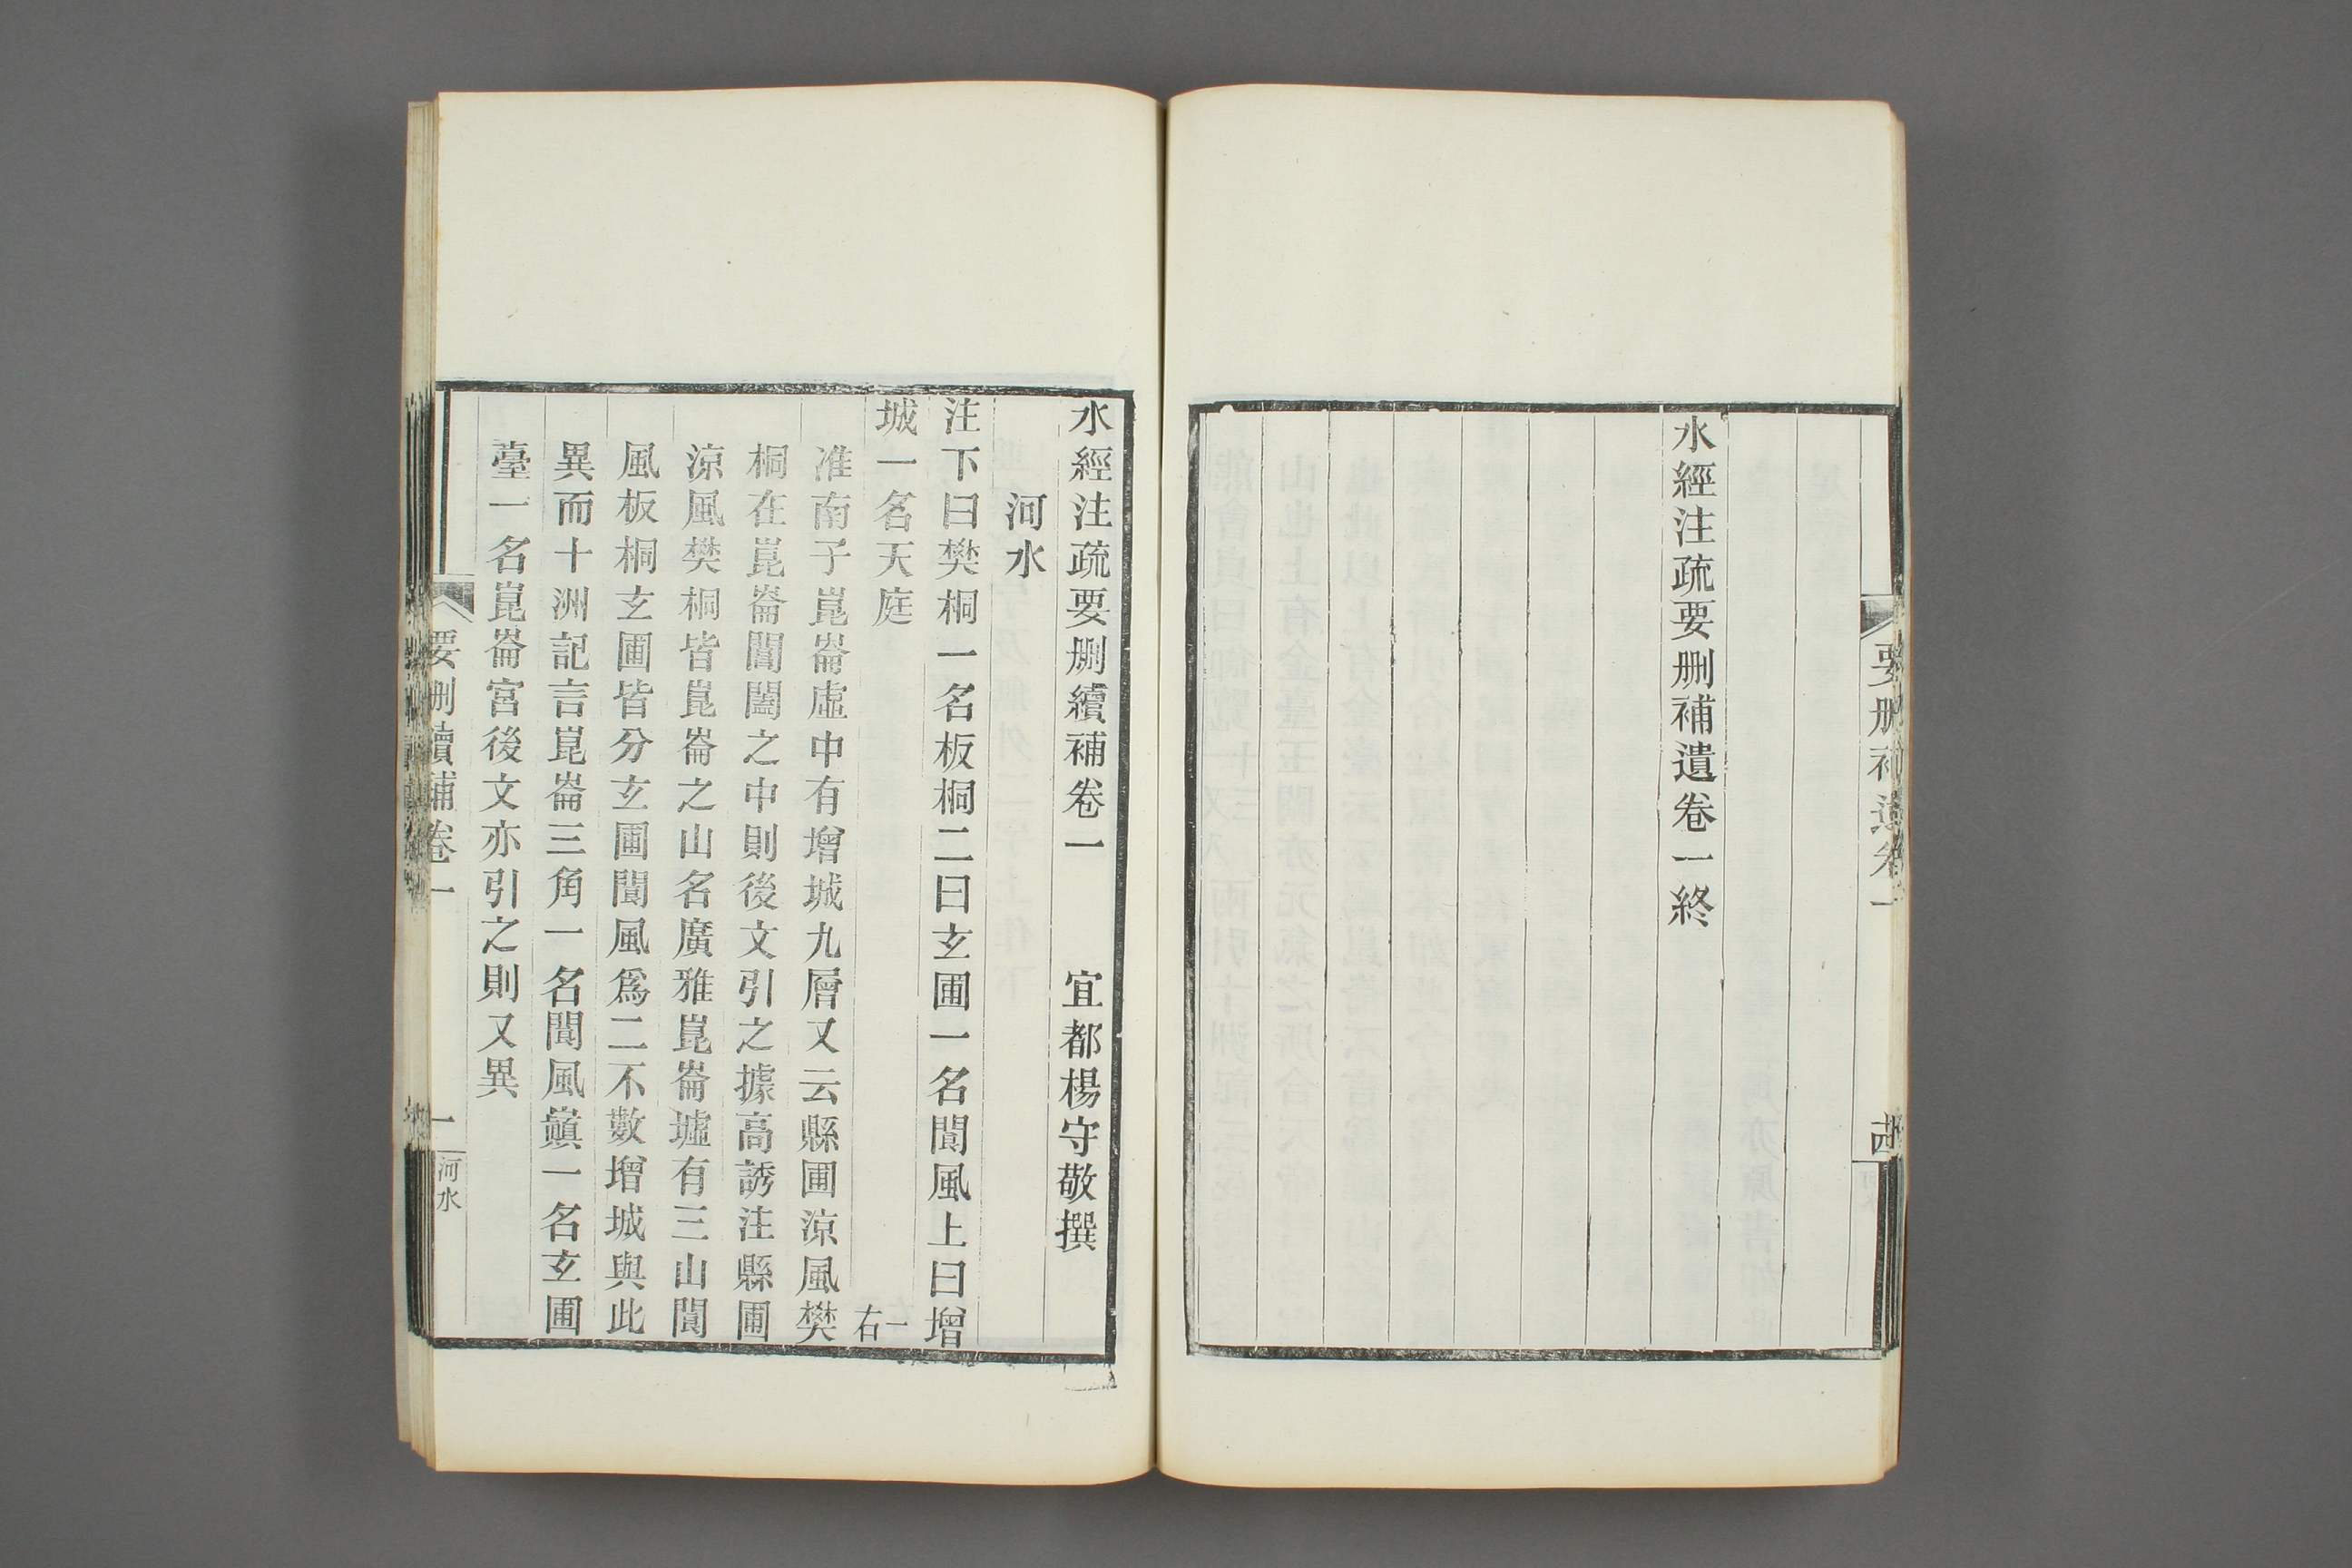 水經注疏要删補遺卷一終
要删補遺卷一
水經注疏要删續補卷一 宜都楊守敬撰
河水
注下曰樊桐一名板桐二曰玄圃一名閬風上曰增
城一名天庭 一右
淮南子崑崙虛中有增城九層又云縣圃涼風樊
桐在崑崙閶闔之中則後文引之據高誘注縣圃
涼風樊桐皆崑崙之山名廣雅崑崙墟有三山閬
風板桐玄圃皆分玄圃閬風爲二不數增城與此
異而十洲記言崑崙三角一名閬風巔一名玄圃
臺一名崑崙宮後文亦引之則又異
要删續補卷一 一 河水